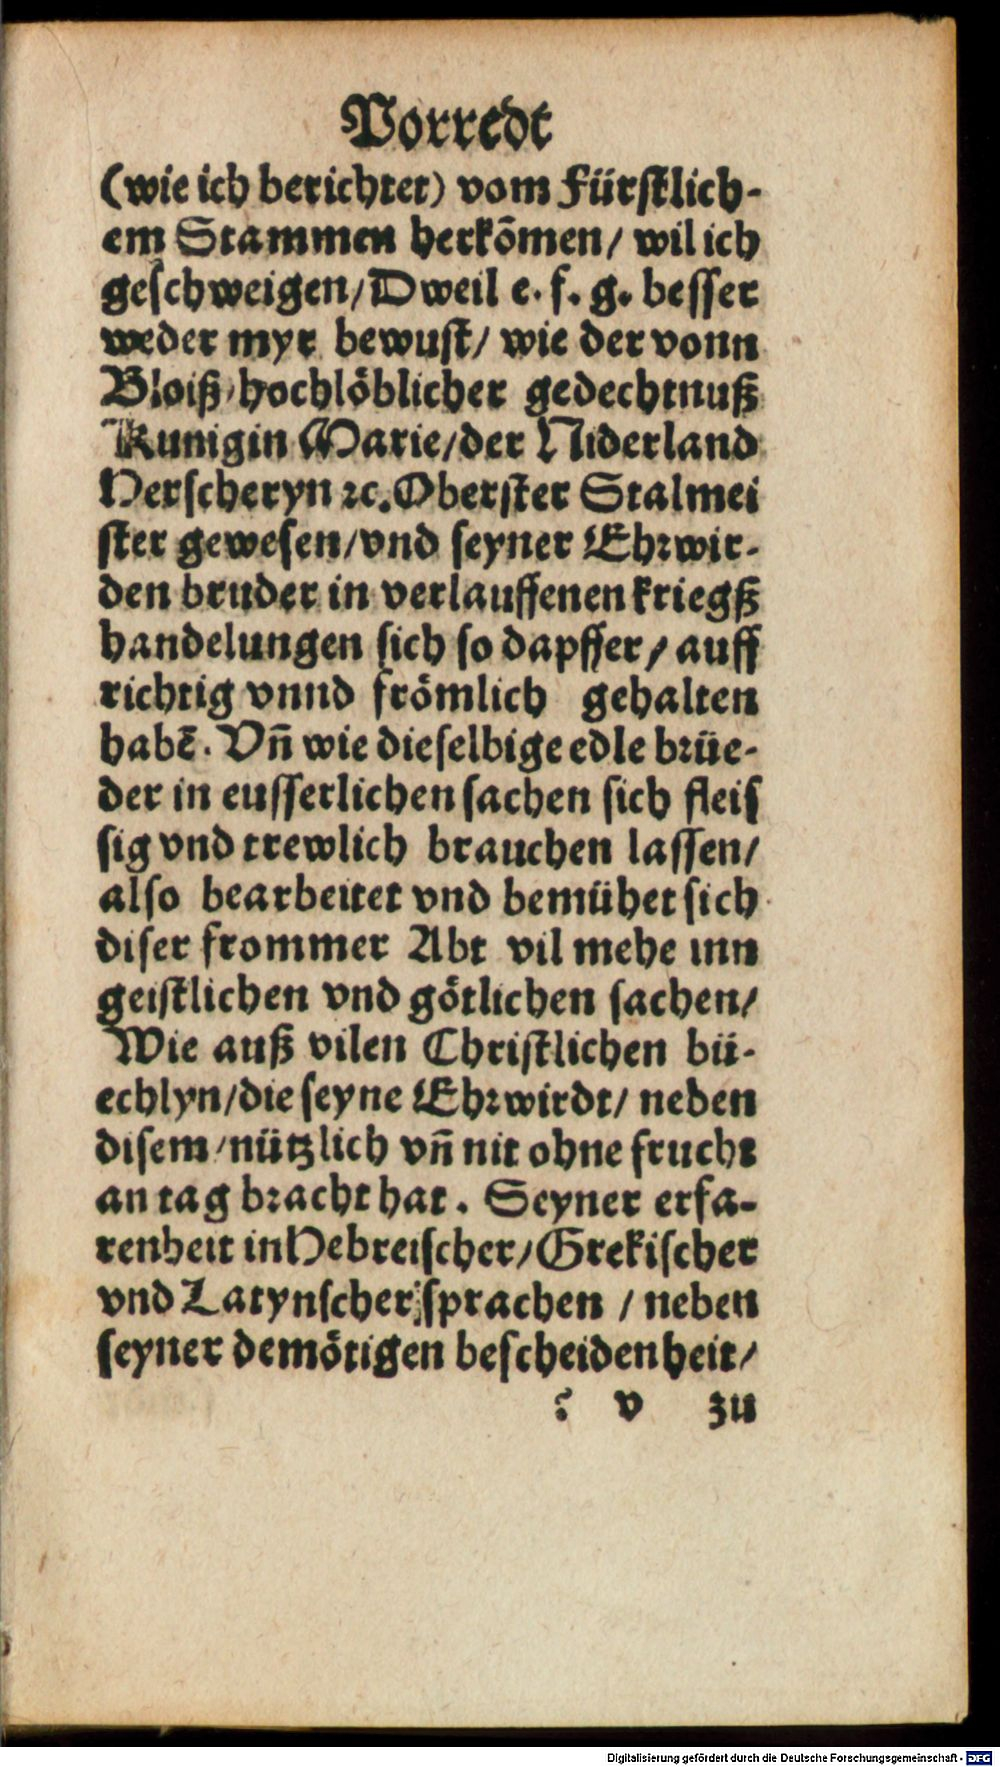 Vorredt
(wie ich berichtet) vom Fürstlich-
em Stammen herkõmen/ wil ich
geschweigen/Dweil e. f. g. besser
weder myr bewust/ wie der vonn
Bloiß/hochlöblicher gedechtnuß
Kunigin Marie/der Niderland
Herscheryn ꝛc. Oberster Stalmei
ster gewesen/vnd seyner Ehrwir-
den bruder in verlauffenen kriegß
handelungen sich so dapffer/ auff
richtig vnnd frömlich gehalten
habẽ. Vñ wie dieselbige edle brüe-
der in eusserlichen sachen sich fleis
sig vnd trewlich brauchen lassen/
also bearbeitet vnd bemühet sich
diser frommer Abt vil mehe inn
geistlichen vnd götlichen sachen/
Wie auß vilen Christlichen bü-
echlyn/die seyne Ehrwirdt/ neben
disem/nützlich vñ nit ohne frucht
an tag bracht hat. Seyner erfa-
renheit in Hebreischer/Grekischer
vnd Latynscher sprachen / neben
seyner demötigen bescheidenheit/
? v zu
Digitalisierung gefördert durch die Deutsche Forschungsgemeinschaft - DFG